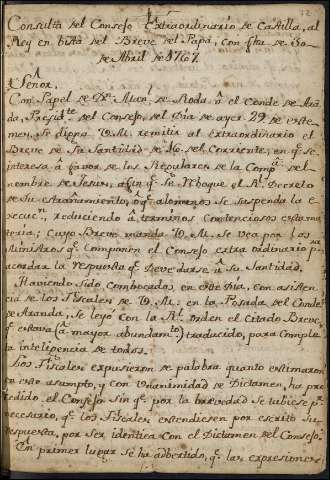 Consulta del Consejo Extraordinario de Castilla, al
Rey en bista del Breve del Papa, con fha de 30
de Abril de 1767.
Señor.
Con Papel de Dn. Man. de Roda â el Conde de Aran
da, Presidte. del Consejo, del Dia de ayer 29 de este
mes, Se digna V. M. remitir al extraordinario el
Breve de Su Santidad de 16 del Corriente, en q. se
interesa â favor de los Regulares de la Compa. del
nombre de Jesus, afin q. Se Reboque el Rl. Decreto
de Su estrañamiento, ô q. alomenos Se Suspenda la e
xecucn. reduciendo â terminos contenciosos esta ma
teria; Cuyo Breve manda V. M. Se vea por los
Ministros q. componen el Consejo extraordinario pa.
acordar la respuesta q. Deve darse â Su Santidad.
Haviendo sido combocados en este Dia, con asisten
cia de los Fiscales de V. M. en la Posada del Conde
de Aranda, Se leyô con la Rl. Orden el citado Breve,
q. estava (â mayor abundamto.) traducido, para Comple
ta inteligencia de todos.
Los Fiscales expusieron de palabra quanto estimaron
en este asumpto, y con Vnanimidad de Dictamen, ha pro
cedido el Consejo sin q. por la brevedad Se tubiese pr.
necesario, q. los Fiscales extendiesen por escrito Su
respuesta, por ser identica con el Dictamen del Consejo.
En primer lugar Se ha advertido, q. las expresiones